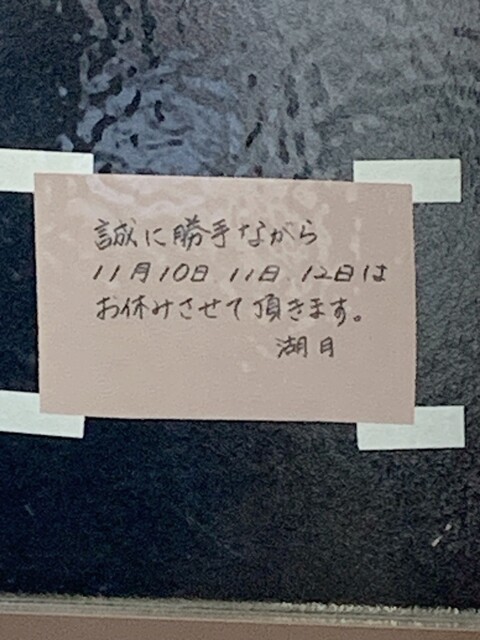 誠に勝手ながら
11月10日、11日、12日は
お休みさせて頂きます。
湖月